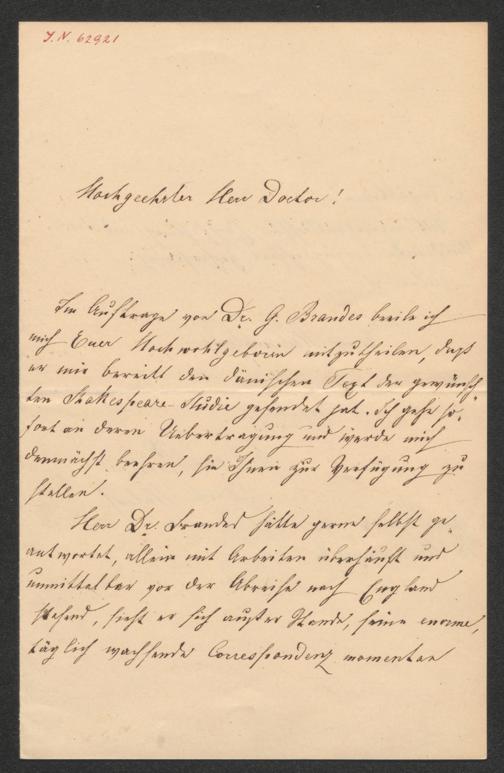 J.N. 62921
Hochgeehrter Herr Doctor!
Im Auftrage von Dr. G. Brandes beeile ich
mich Euer Hochwohlgeboren mitzutheilen, daß
er mir bereits den dänischen Text der gewünsch-
ten Shakespeare-Studie gesendet hat. Ich gehe so-
fort an deren Uebertragung und werde mich
demnächst beehren, sie Ihnen zur Verfügung zu
stellen.
Herr Dr. Brandes hätte gerne selbst ge-
antwortet, allein mit Arbeiten überhäuft und
unmittelbar vor der Abreise nach England
stehend, sieht er sich außer Stande, seine enorme,
täglich wachsende Correspondenz momentan